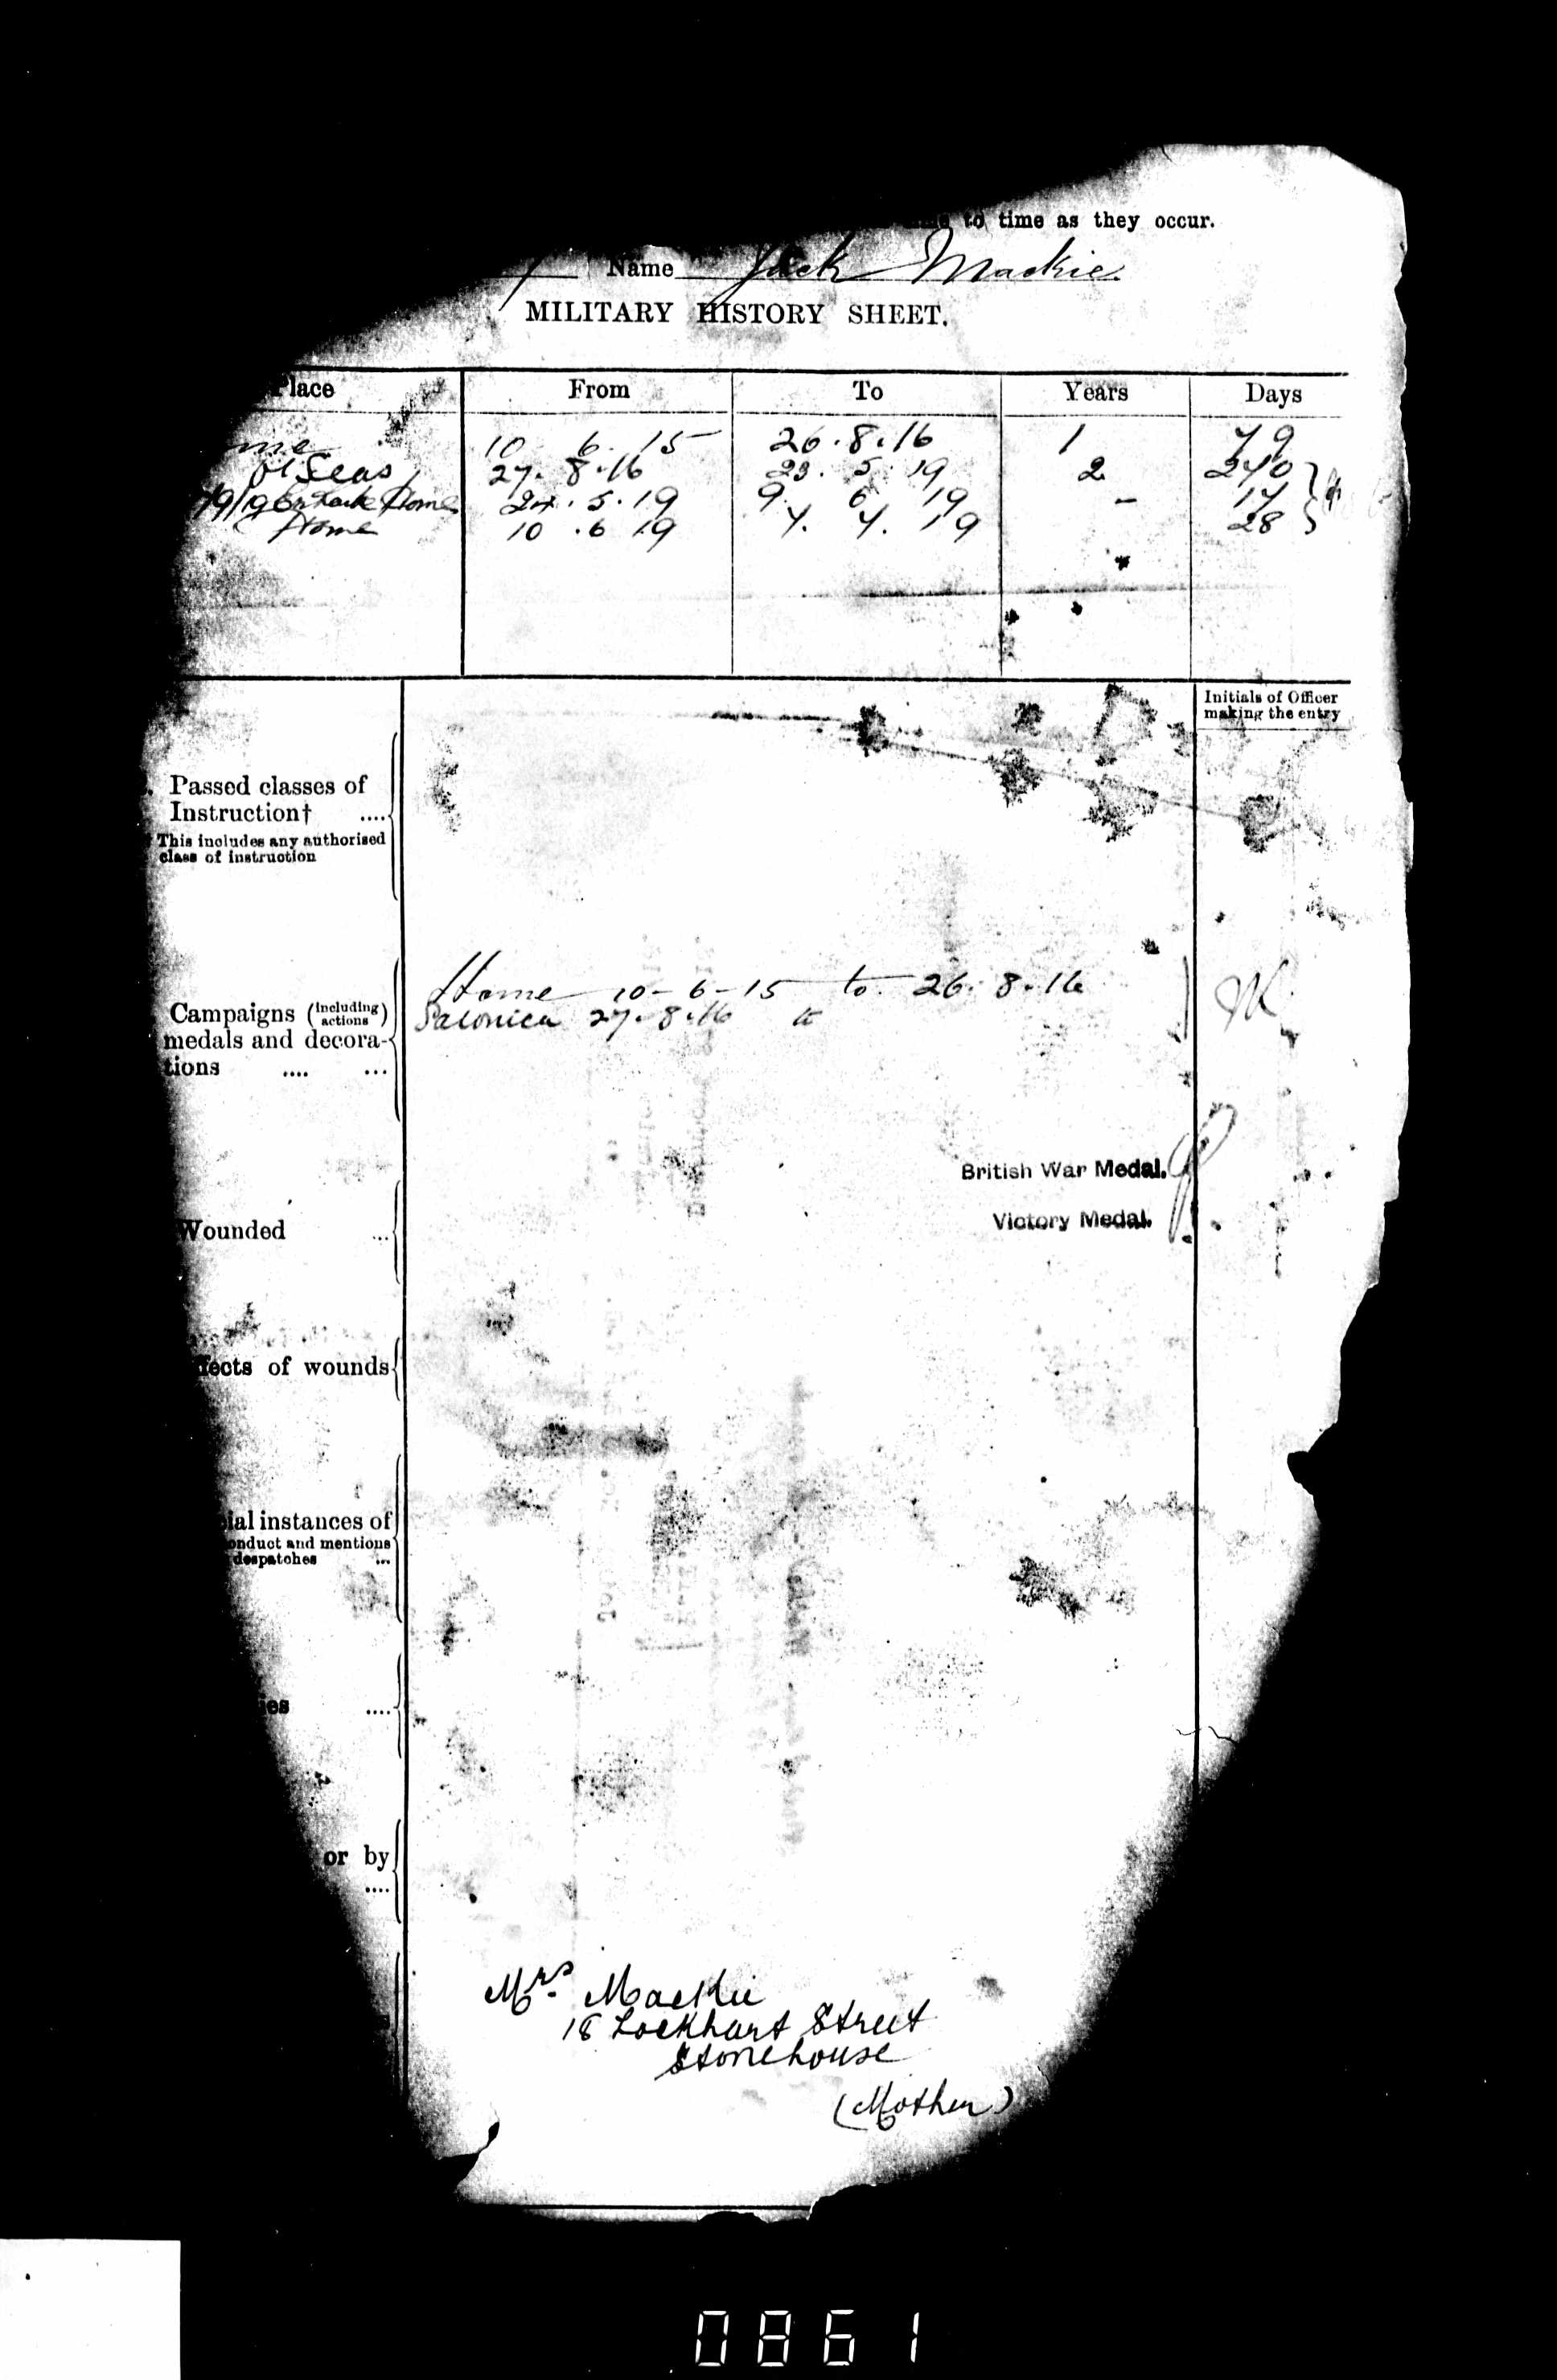 to time as they occur.
Name Jack Mackie
MILITARY HISTORY SHEET.
Place From To Years Days
me 10 6 15 26.8.16 1 79
Seas 27.8.16 23.5.19 2 240
Home 24.5.19 9 6 19 - 17
Home 10.6 19 7. 7. 19 28
Initials of Officer
making the entry
Passed classes of
Instruction† ....
This includes any authorised
class of instruction
Home 10-6-15 to 26.8.16
Salonica 27.8.16 to
Campaigns (including actions)
medals and decora-
tions .... ...
British War Medal.
Victory Medal.
Wounded ...
ffects of wounds
ial instances of
onduct and mentions
despatches ...
es ....
or by
....
Mrs. Mackie
18 Lockhart Street
Stonehouse
(Mother)
0861